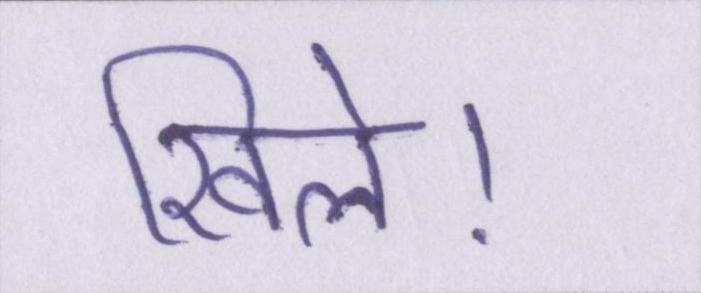 खिले!